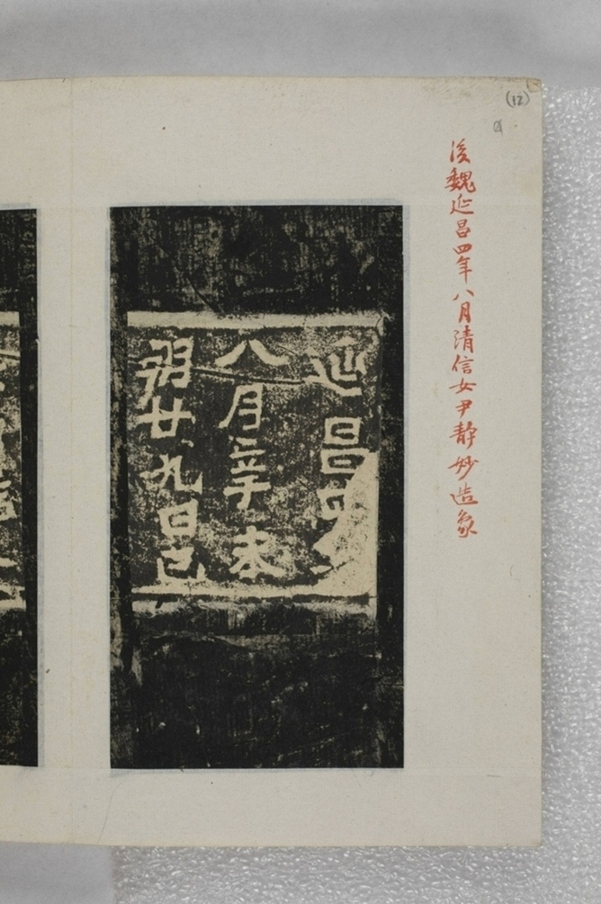 (12)
後魏延昌四年八月清信女尹靜妙造象
延昌四
八月辛未
朔廿九日己